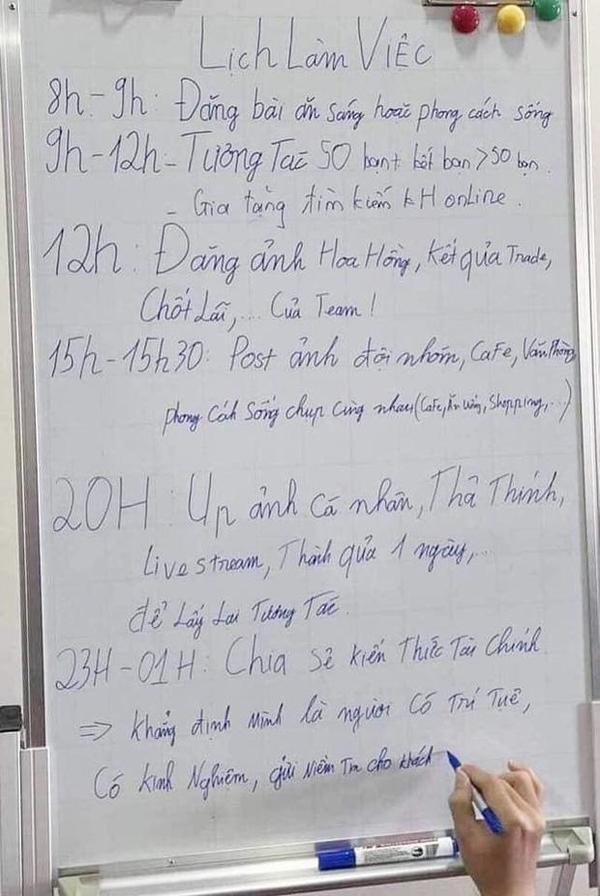 Lịch Làm Việc
8h - 9h: Đăng bài ăn sáng hoặc phong cách sống
9h - 12h - Tương Tác 50 bạn + kết bạn > 50 bạn.
- Gia tăng tìm kiếm KH online.
12h: Đăng ảnh Hoa Hồng, Kết quả Trade,
Chốt Lãi,... Của Team!
15h - 15h30: Post ảnh đội nhóm, CaFe, Văn Phòng
phong Cách Sống chụp Cùng nhau (CaFe, Ăn uống, Shopping,...)
20H: Up ảnh Cá nhân, Thả Thính,
Live stream, Thành quả 1 ngày,...
để Lấy Lại Tương Tác.
23H - 01H: Chia Sẻ Kiến Thức Tài Chính
=> Khẳng định Mình là người Có Trí Tuệ,
Có Kinh Nghiệm, gửi Niềm Tin cho khách